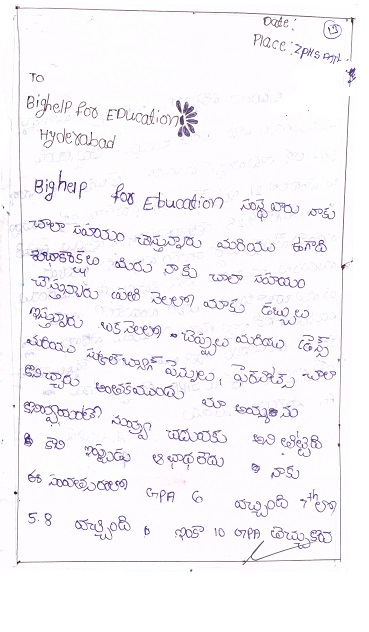 Date: 15
Place: ZPHS
TO
Bighelp for EDucation
Hyderabad
Bighelp for Ebucation సంస్థవారు నాకు
చాలా సహయం చేస్తున్నారు మరియు ఉగాది
శుభాకాంక్షలు మీరు నాకు చాలా సహయం
చేస్తున్నారు ప్రతి నెలలో మాకు డబ్బులు
ఇస్తున్నారు ఒక నెలలో చెప్పులు మరియు డ్రెస్స్
మరియు స్కూల్ బ్యాగ్ పెన్నులు, చాలా
ఇచ్చారు అంతకముందు మా అమ్మ ను
నువ్వు చదువకు అని
కాని ఇప్పుడు ఆ బాధ లేదు నాకు
ఈ సంవత్సరంలో GPA 6 వచ్చింది 7th లో
5.8 వచ్చింది ఇంకా 10 GPA